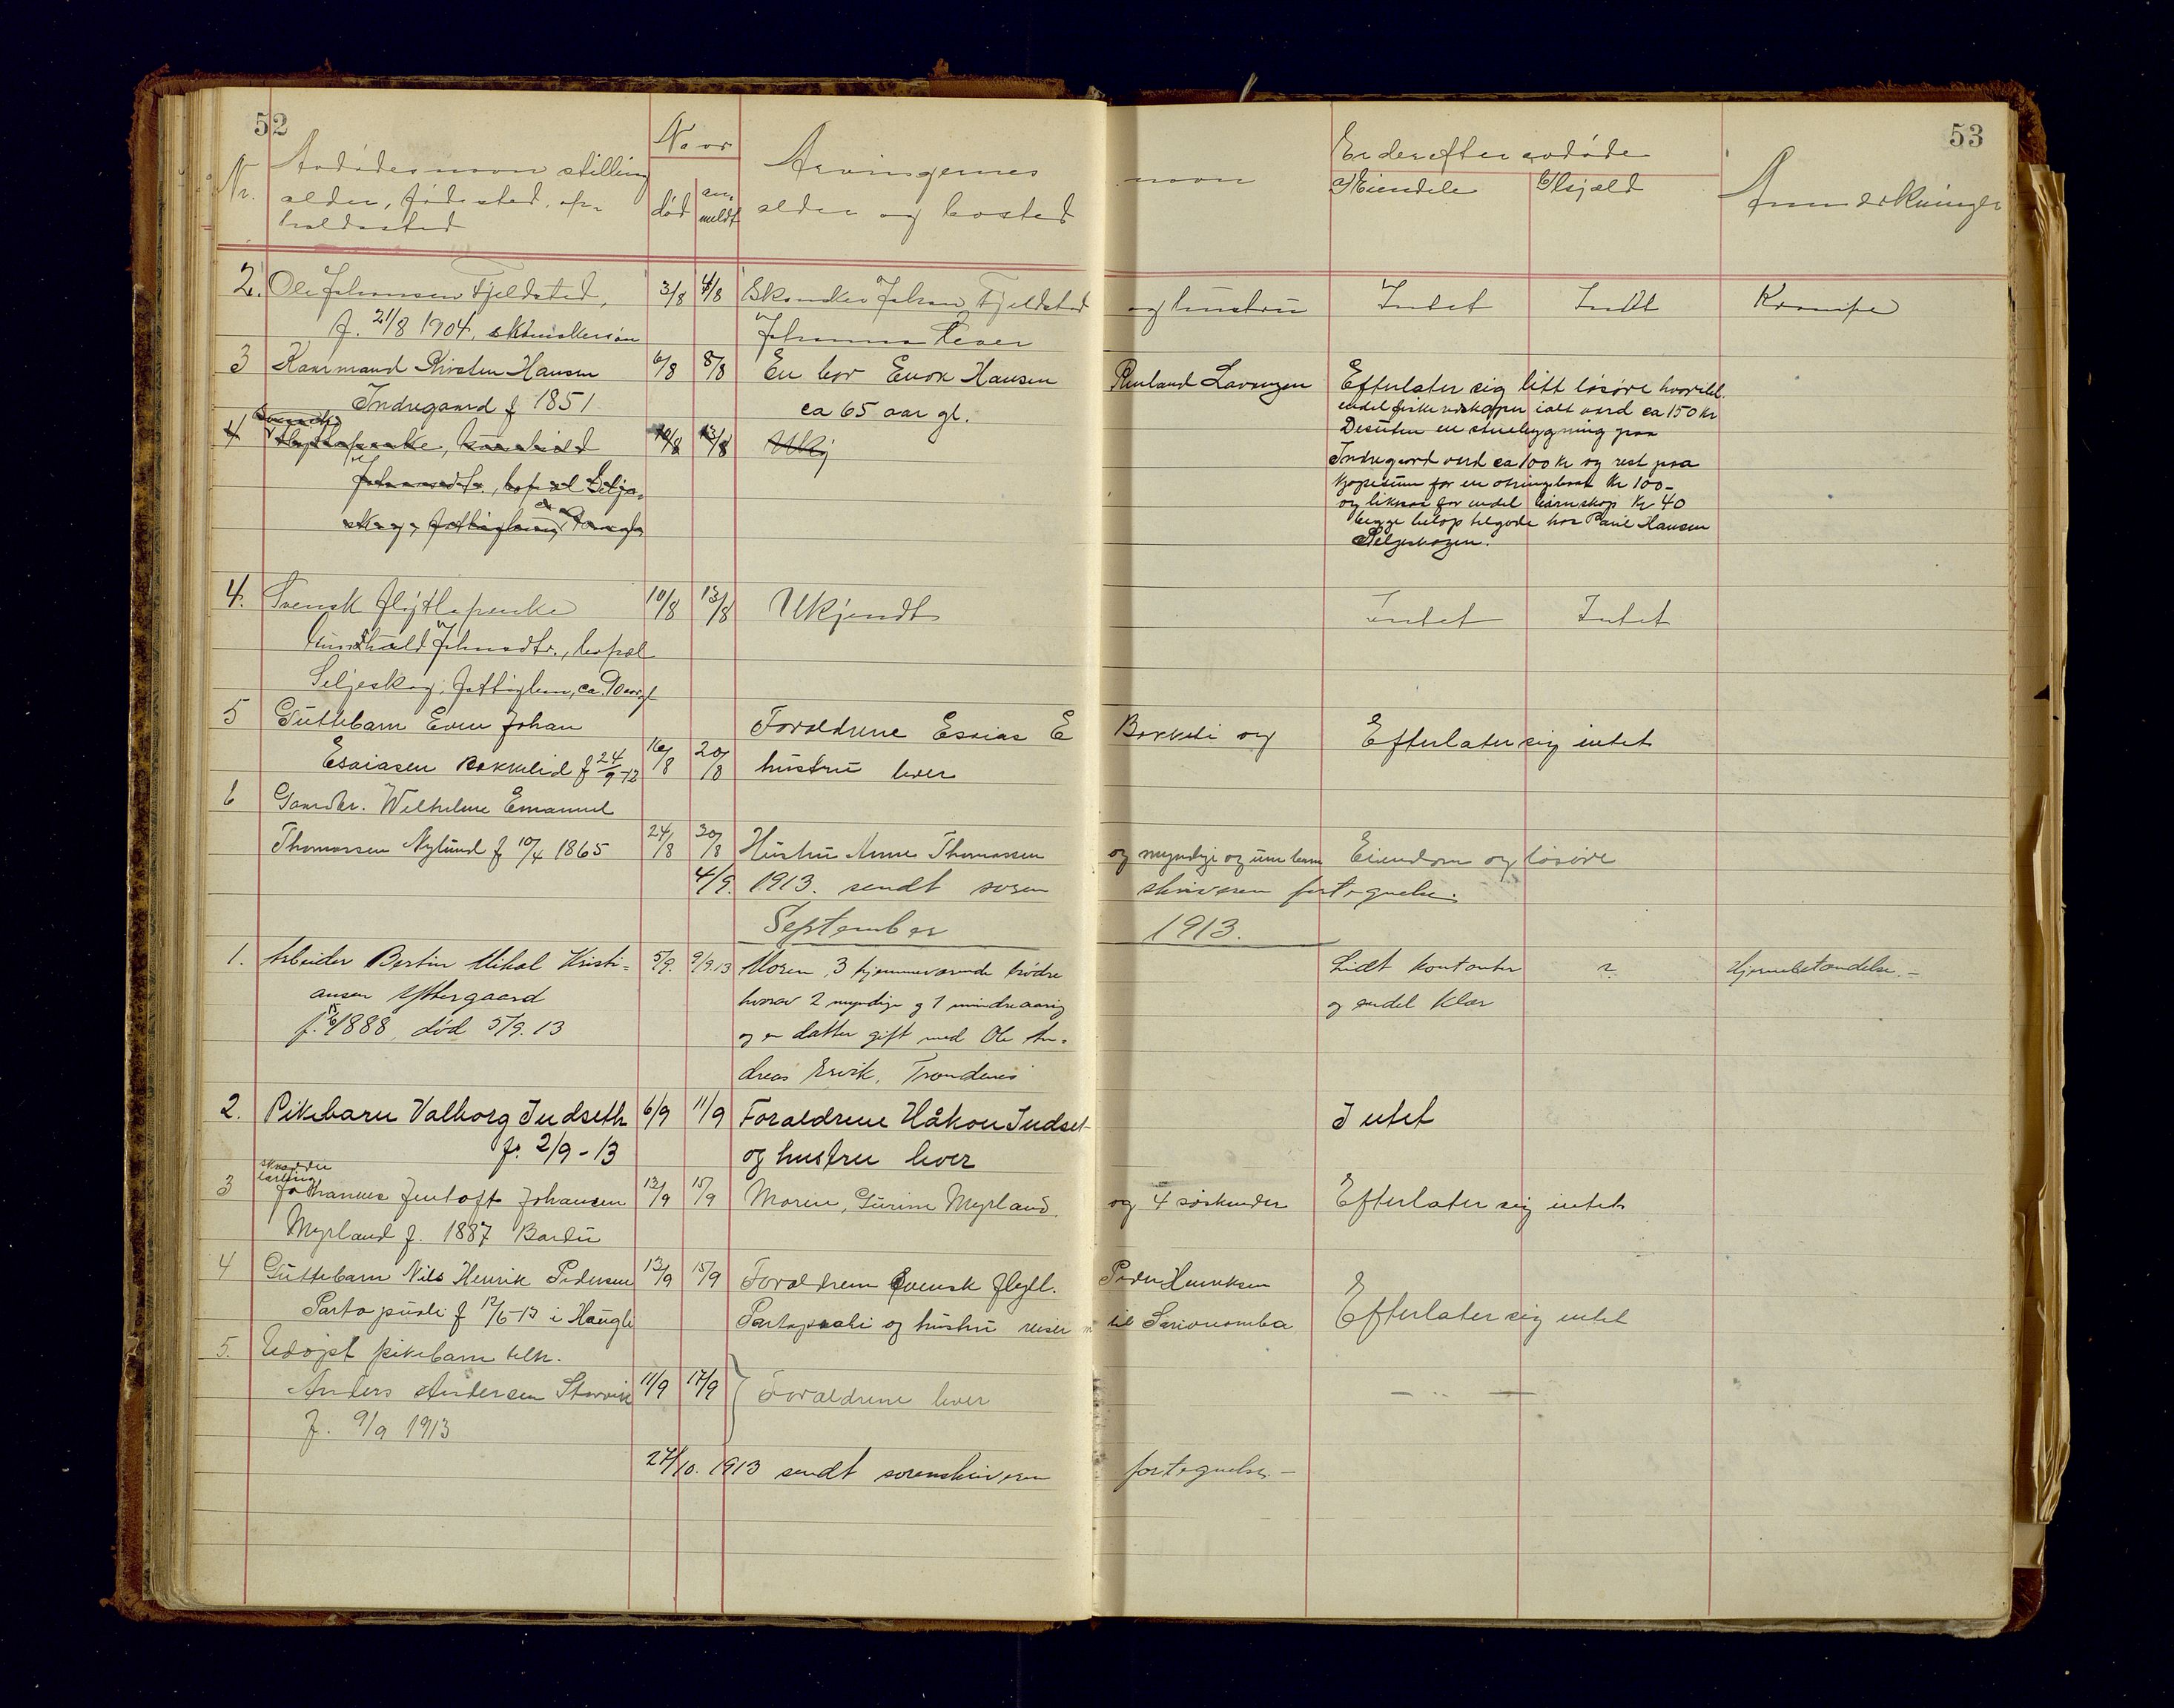 52
53
Nr.
Avdødes navn stilling
alder, fødested, op-
holdssted
Naar
død
an-
meldt
Arvingernes navn
alder og bosted
Er der efter avdøde
a) Eiendele
b) Gjæld
Anmerkninger
2. Ole Johansen Fjeldstad, 3/8 4/8 Skomaker Johan Fjeldstad og hustru Intet Intet Krampe
f. 21/8 1904, skomakersøn Johanna lever
3 Kaarmand Kirsten Hansen 6/8 8/8 En bror Enok Hansen Rinland Lavangen Efterlater sig litt løsøre hvoriblt.
Indregaard f 1851 ca 65 aar gl. endel fiskeredskaper ialt værd ca 150 kr
Desuten en stuebygning paa
Indregaard værd ca 100 kr og rest paa
kjøpesum for en otringsbaat kr 100-
og likesaa for endel bruskap kr 40
begge beløp tilgode hos Paul Hansen
Seljeskogen.
4 10/8 13/8 Ukj
Johannesdtr., bopæl Selje-
skog,
4. Svensk flytlapenke 10/8 13/8 Ukjendt Intet Intet
Johnsdtr., bopæl
Seljeskog, ca. 90 aar gl
5 Guttebarn Even Johan Forældrene Esaias E Bakkeli og Efterlater sig intet
Esaiasen Bakkelid f 24/9-12 16/8 20/8 hustru lever
6 Gaardbr. Wilhelm Emanuel
Thomassen Nylund f 10/4 1865 24/8 30/8 Hustru Anne Thomassen og myndige og um. barn Eiendom og løsøre
4/9. 1913. sendt sorenskriveren fortegnelse.
September 1913.
1. Arbeider Bertin Mikal Kristi- 5/9. 9/9.13 Moren, 3 hjemmeværende brødre Lidt kontanter ? Hjernebetændelse.-
ansen Yttergaard hvorav 2 myndige og 1 mindreaarig og endel klær
f. 15/6 1888, død 5/9.13 og en datter gift med Ole An-
dreas Ervik, Trondenes
2. Pikebarn Valborg Indseth 6/9 11/9 Forældrene Håkon Indset- Intet
f. 2/9-13 og hustru lever
skrædder
lærling
3 Johannes Jentoft Johansen 12/9 15/9 Moren, Gurine Myrland og 4 søskender Efterlater sig intet
Myrland f. 1887 Bardu
4 Guttebarn Nils Henrik Pedersen 12/9 15/9 Forældrene Svensk flytl. Peder Henriksen Efterlater sig intet
Partapuoli f 12/6-13 i Haugli Partapuoli og hustru reiser til Sarivuomba
5. Udøpt pikebarn tilh.
Anders Andersen Storvik 11/9 17/9 Forældrene lever — „ —
f. 9/9 1913
27/10. 1913 sendt sorenskriveren fortegnelse.-